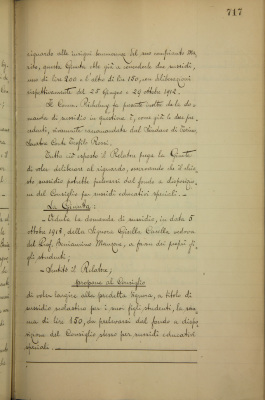 717
riguardo alle insigni benemerenze del suo compianto Ma-
rito, questa Giunta ebbe già a concederle due sussidi,
uno di lire 200 e l'altro di lire 150, con deliberazioni
rispettivamente del 25 Giugno e 29 ottobre 1912.
Il Comm. fa presente inoltre che la do-
manda di sussidio in questione è, come già le due pre-
cedenti, vivamente raccomandata dal Sindaco di Torino,
Senatore Conte Teofilo Rossi.
Tutto ciò esposto il Relatore prega la Giunta
di voler deliberare al riguardo, osservando che il chie-
sto sussidio potrebbe prelevarsi dal fondo a disposizio-
ne del Consiglio per sussidi educativi speciali. —
La Giunta:
— Veduta la domanda di sussidio, in data 5
ottobre 1913, della Signora Casella, vedova
del Prof. Beniamino Manzone, a favore dei propri fi-
gli studenti;
— Sentito il Relatore;
propone al Consiglio
di voler largire alla predetta Signora, a titolo di
sussidio scolastico per i suoi figli studenti, la som-
ma di lire 150, da prelevarsi dal fondo a dispo-
sizione del Consiglio stesso per sussidi educativi
speciali. —